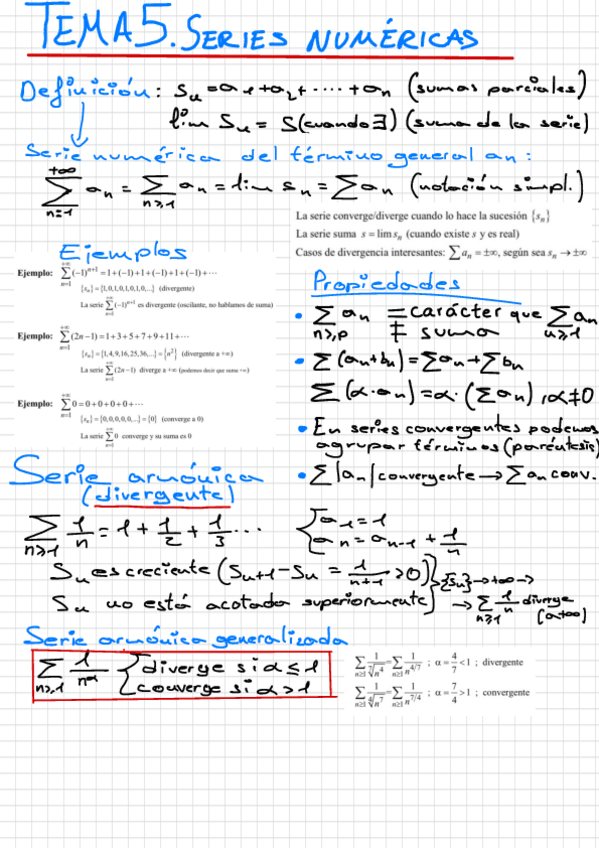 TEMA 5. SERIES NUMÉRICAS
Definición: Sn = a1 + a2 + ····· + an (sumas parciales)
lim Sn = S (cuando ∃) (suma de la serie)
Serie numérica del término general an:
∑_{n=1}^{+∞} an = ∑_{n≥1} an = lim sn = ∑ an (notación simpl.)
La serie converge/diverge cuando lo hace la sucesión {s_n}
La serie suma s = lim s_n (cuando existe s y es real)
Casos de divergencia interesantes: ∑ a_n = ±∞, según sea s_n → ±∞
Ejemplos
Ejemplo: ∑_{n=1}^{+∞} (-1)^{n+1} = 1+(-1)+1+(-1)+1+(-1)+⋯
{s_n} = {1,0,1,0,1,0,1,0,...} (divergente)
La serie ∑_{n=1}^{+∞} (-1)^{n+1} es divergente (oscilante, no hablamos de suma)
Ejemplo: ∑_{n=1}^{+∞} (2n-1) = 1+3+5+7+9+11+⋯
{s_n} = {1,4,9,16,25,36,...} = {n²} (divergente a +∞)
La serie ∑_{n=1}^{+∞} (2n-1) diverge a +∞ (podemos decir que suma +∞)
Ejemplo: ∑_{n=1}^{+∞} 0 = 0+0+0+0+⋯
{s_n} = {0,0,0,0,0,...} = {0} (converge a 0)
La serie ∑_{n=1}^{+∞} 0 converge y su suma es 0
Propiedades
• ∑_{n≥p} an = carácter que ∑_{n≥1} an
≠ suma
• ∑(an+bn) = ∑an + ∑bn
∑(α·an) = α·(∑an), α≠0
• En series convergentes podemos
agrupar términos (paréntesis)
• ∑|an| convergente → ∑an conv.
Serie armónica
(divergente)
∑_{n≥1} 1/n = 1 + 1/2 + 1/3 ...
{ a1 = 1
an = an-1 + 1/n
Sn es creciente (Sn+1 - Sn = 1/(n+1) > 0)
Sn no está acotada superiormente
} {Sn} → +∞ →
→ ∑_{n≥1} 1/n diverge
(a +∞)
Serie armónica generalizada
∑_{n≥1} 1/n^α { diverge si α ≤ 1
converge si α > 1
∑_{n≥1} 1/⁷√n⁴ = ∑_{n≥1} 1/n^{4/7} ; α = 4/7 < 1 ; divergente
∑_{n≥1} 1/⁴√n⁷ = ∑_{n≥1} 1/n^{7/4} ; α = 7/4 > 1 ; convergente